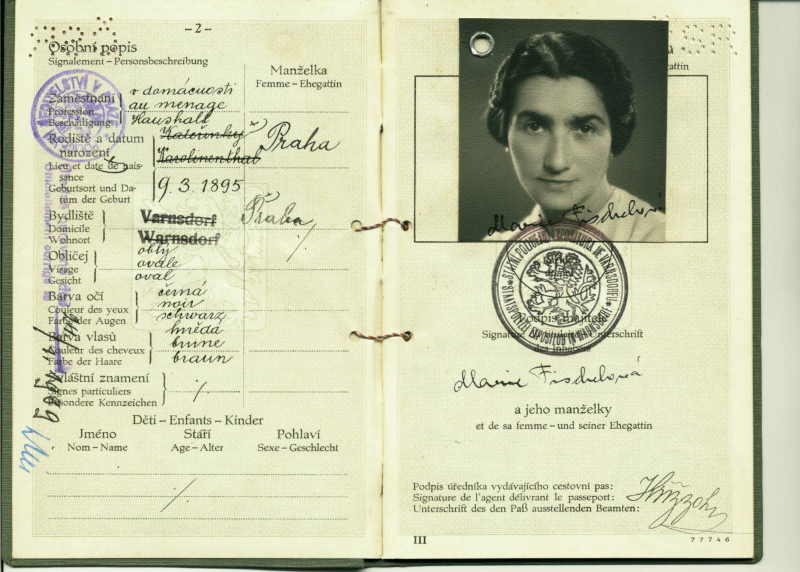 – 2 –
Osobní popis
Signalement – Personsbeschreibung
Manželka
Femme – Ehegattin
Zaměstnání
Profession
Beschäftigung
v domácnosti
au ménage
Haushalt
Rodiště a datum
narození
Lieu et date de nais-
sance
Geburtsort und Da-
tum der Geburt
Karolinenthal
Praha
9. 3. 1895
Bydliště
Domicile
Wohnort
Varnsdorf
Warnsdorf
Praha
Obličej
Visage
Gesicht
oblý
ovale
oval
Barva očí
Couleur des yeux
Farbe der Augen
černá
noir
schwarz
Barva vlasů
Couleur des cheveux
Farbe der Haare
hnědá
brune
braun
Zvláštní znamení
Signes particuliers
Besondere Kennzeichen
Děti – Enfants – Kinder
Jméno
Nom – Name
Stáří
Age – Alter
Pohlaví
Sexe – Geschlecht
attin
Marie Fischelová
Podpis
Signature
Unterschrift
Marie Fischelová
a jeho manželky
et de sa femme – und seiner Ehegattin
Podpis úředníka vydávajícího cestovní pas:
Signature de l'agent délivrant le passeport:
Unterschrift des den Paß ausstellenden Beamten:
III
77746